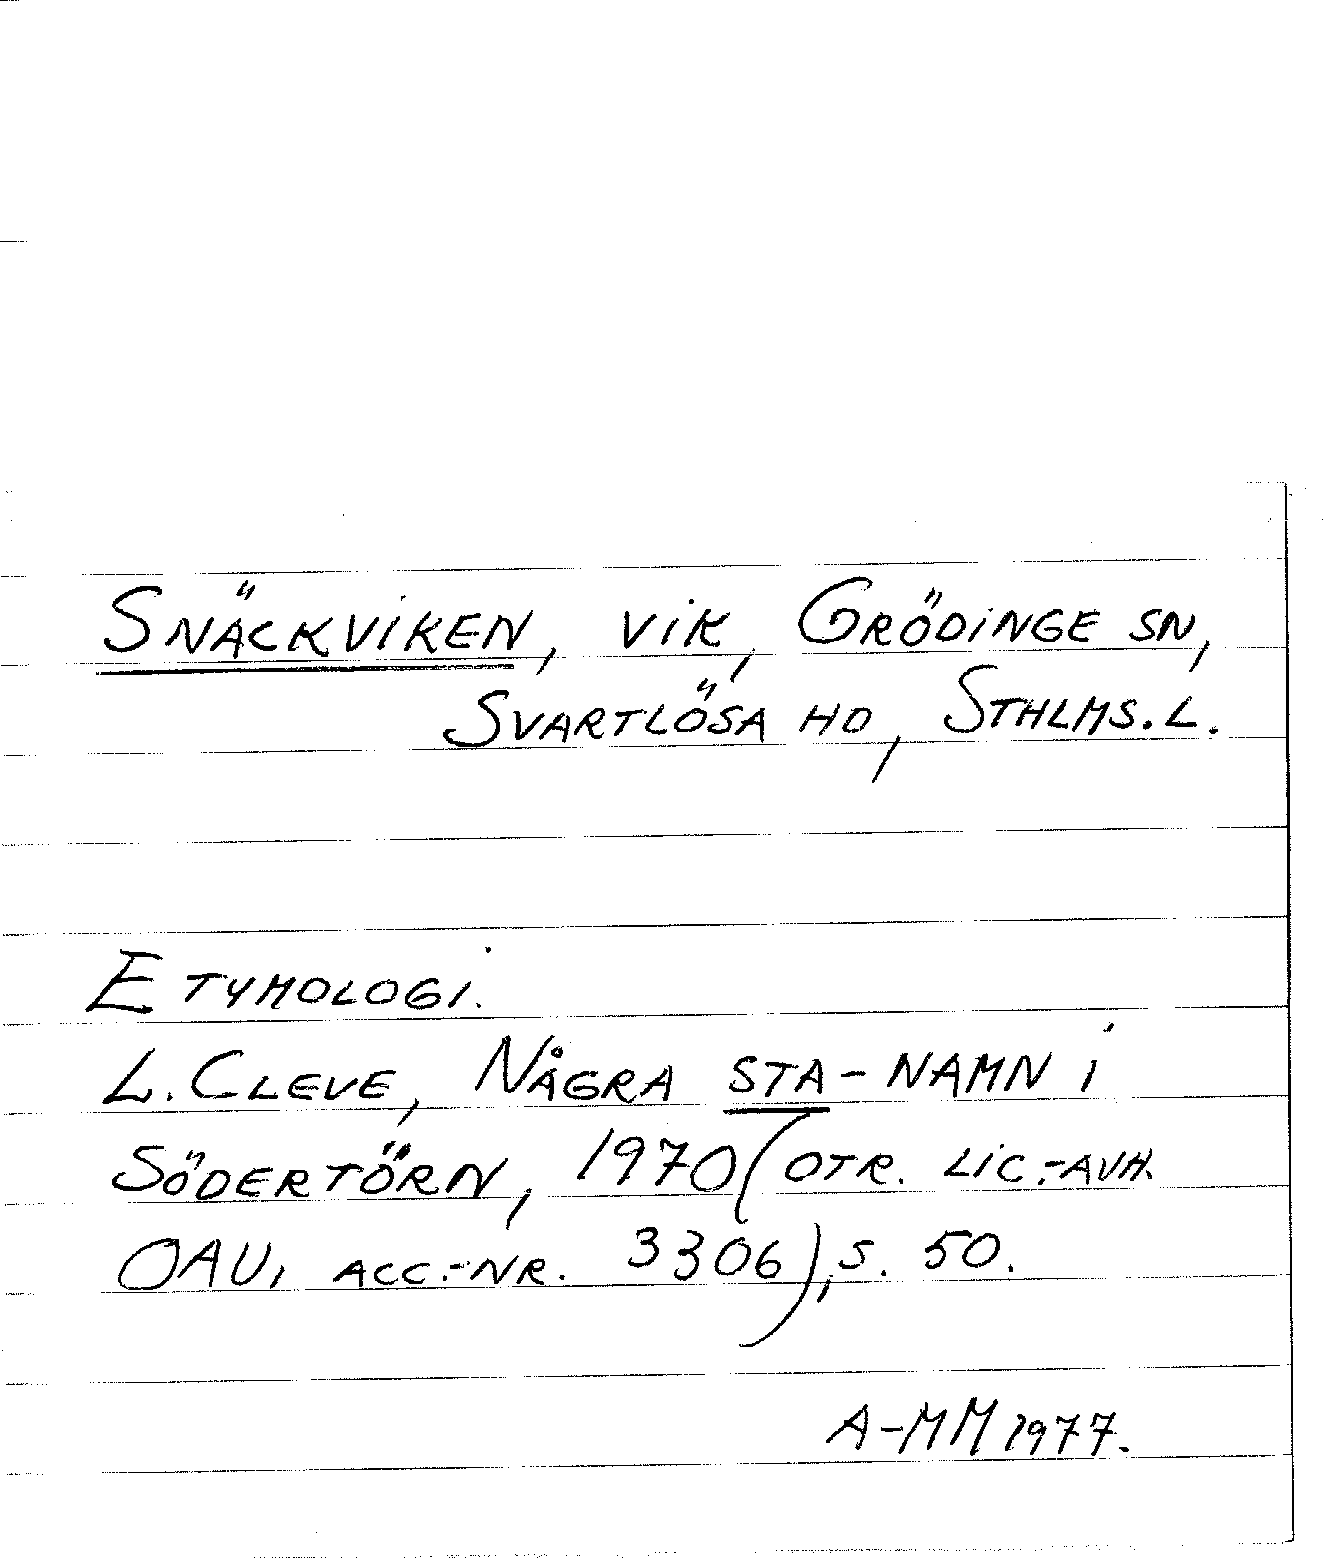 SNÄCKVIKEN, VIK, GRÖDINGE SN,
SVARTLÖSA HD, STHLMS. L.
ETYMOLOGI.
L. CLEVE, NÅGRA STA-NAMN I
SÖDERTÖRN, 1970 (OTR. LIC.-AVH.
OAU, ACC.-NR. 3306), S. 50.
A-MM 1977.